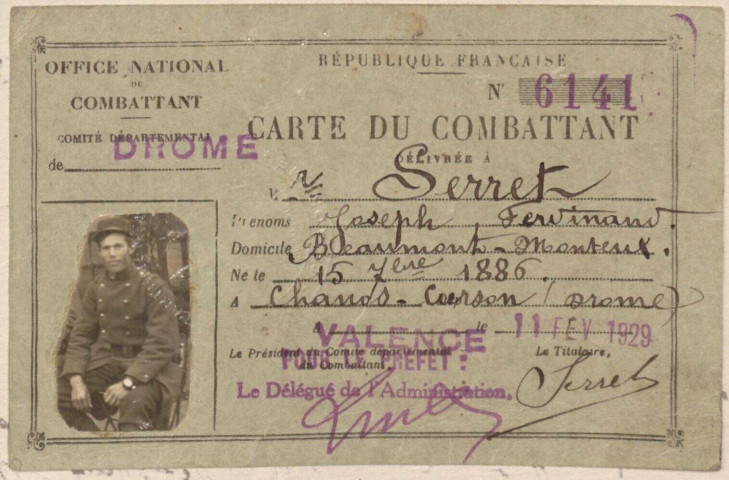 OFFICE NATIONAL
DU
COMBATTANT
COMITÉ DÉPARTEMENTAL
de DROME
RÉPUBLIQUE FRANÇAISE
N° 6141
CARTE DU COMBATTANT
DÉLIVRÉE À
Serret
Prénoms Joseph Ferdinand.
Domicile Beaumont-Monteux.
Né le 15 7bre 1886.
A Chanos-Curson (Drome)
à VALENCE le 11 FEV 1929
Le Président du Comité départemental
du Combattant,
POUR LE PREFET:
Le Délégué de l'Administration,
Le Titulaire,
Serret